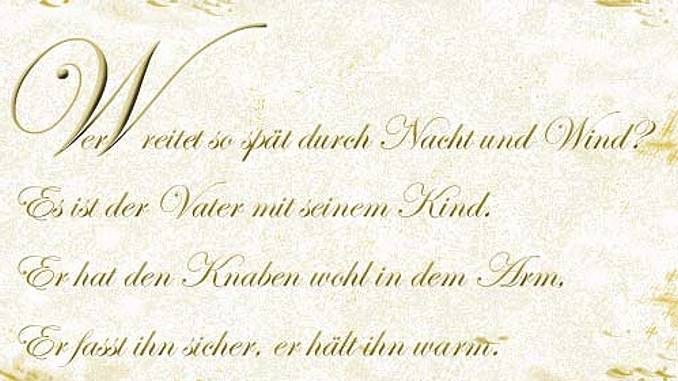 Wer reitet so spät durch Nacht und Wind?
Es ist der Vater mit seinem Kind.
Er hat den Knaben wohl in dem Arm,
Er fasst ihn sicher, er hält ihn warm.